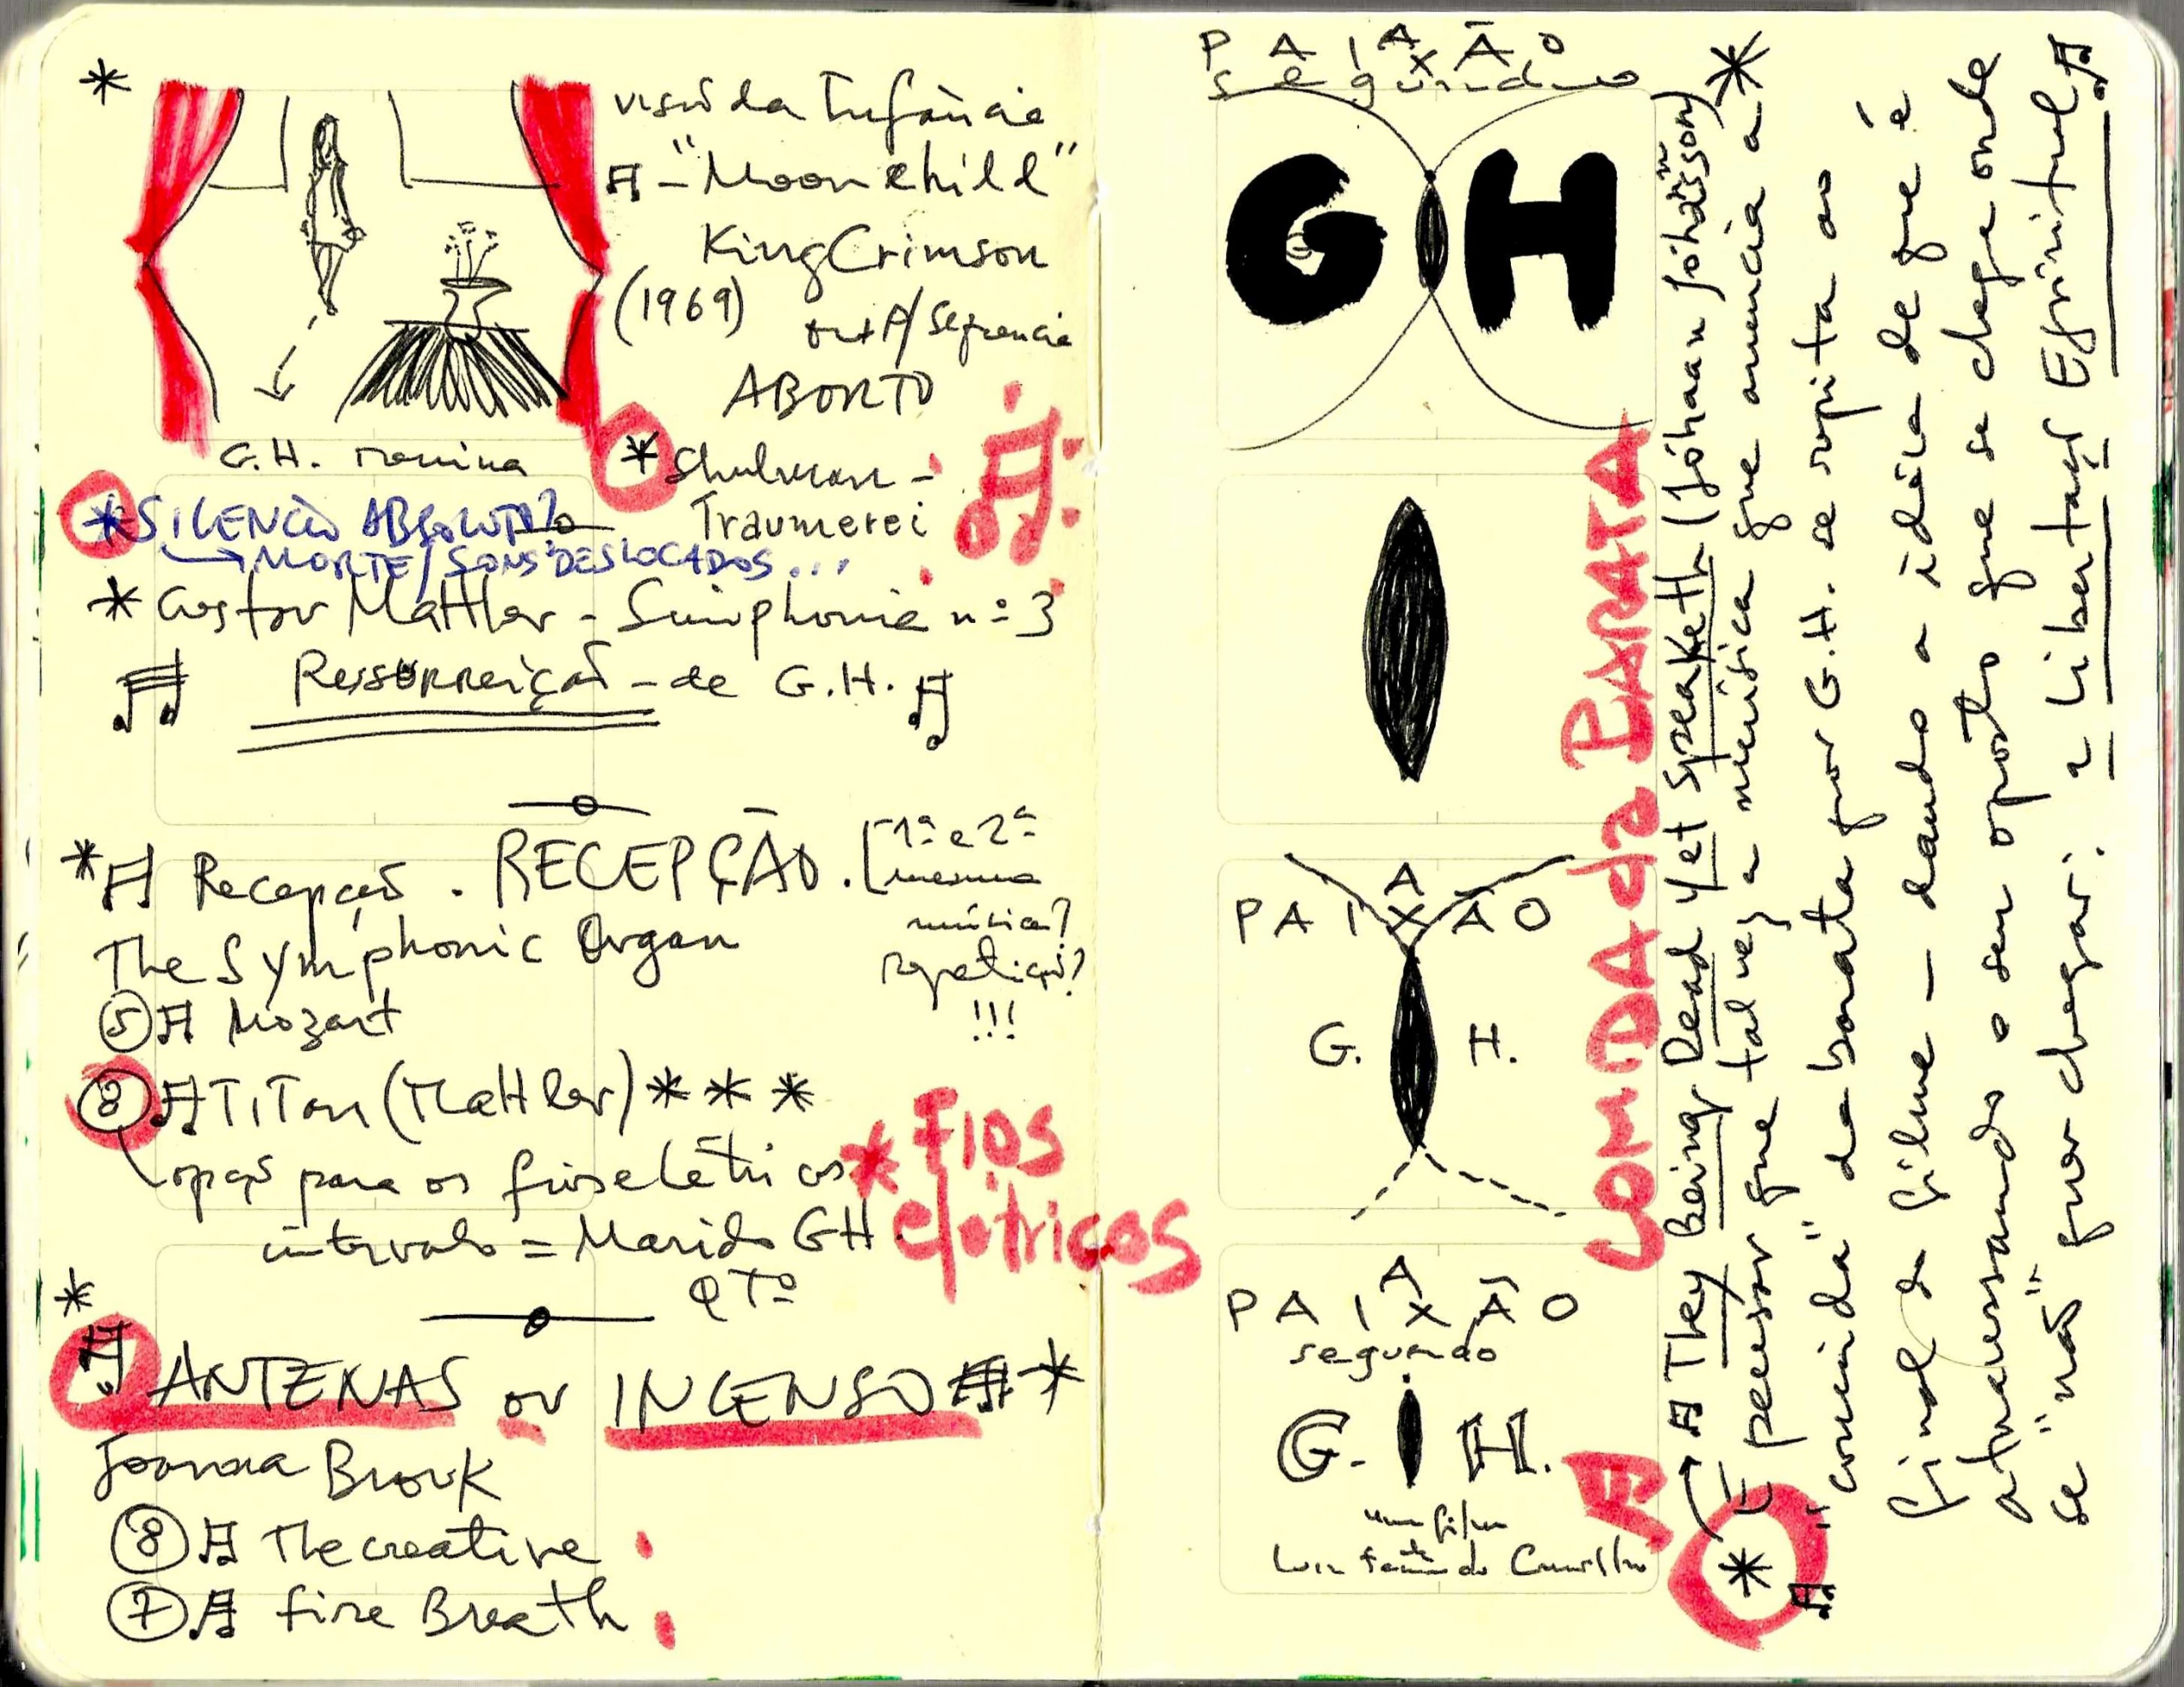 *
visão da Infância
- "Moonchild"
King Crimson
(1969)
ABORTO
G.H. menina
* Shulman -
Traumerei
* SILENCIO ABSOLUTO?
MORTE / SONS DESLOCADOS...
* Gustav Mattler - Simphonie nº 3
Ressurreição - de G.H.
* Recepção. RECEPÇÃO. [1ª e 2ª
mesma
música?
repetição?
!!!
The Symphonic Organ
⑤ Mozart
⑧ TiTan (Mattler) * * *
opção para os fios elétricos
* FIOS
elétricos
intervalo = Marido GH.
QTº
*
ANTENAS ou INCENSO *
Joanna Brouk
⑧ The creative
⑦ fire Breath
A
PAIXÃO
segundo
GH
A
PAIXÃO
G. H.
A
PAIXÃO
segundo
G. H.
um filme
Luiz Fernando Carvalho
COMIDA da BARATA
*
→ They being Dead yet speaketh (Jóhann Jóhannsson)
* E pensar que talvez a música que anuncia a
"comida" da barata por G.H. se repita no
final do filme - dando a idéia de que é
atravessando o seu oposto que se chega onde
se "não" quer chegar: a Libertação Espiritual